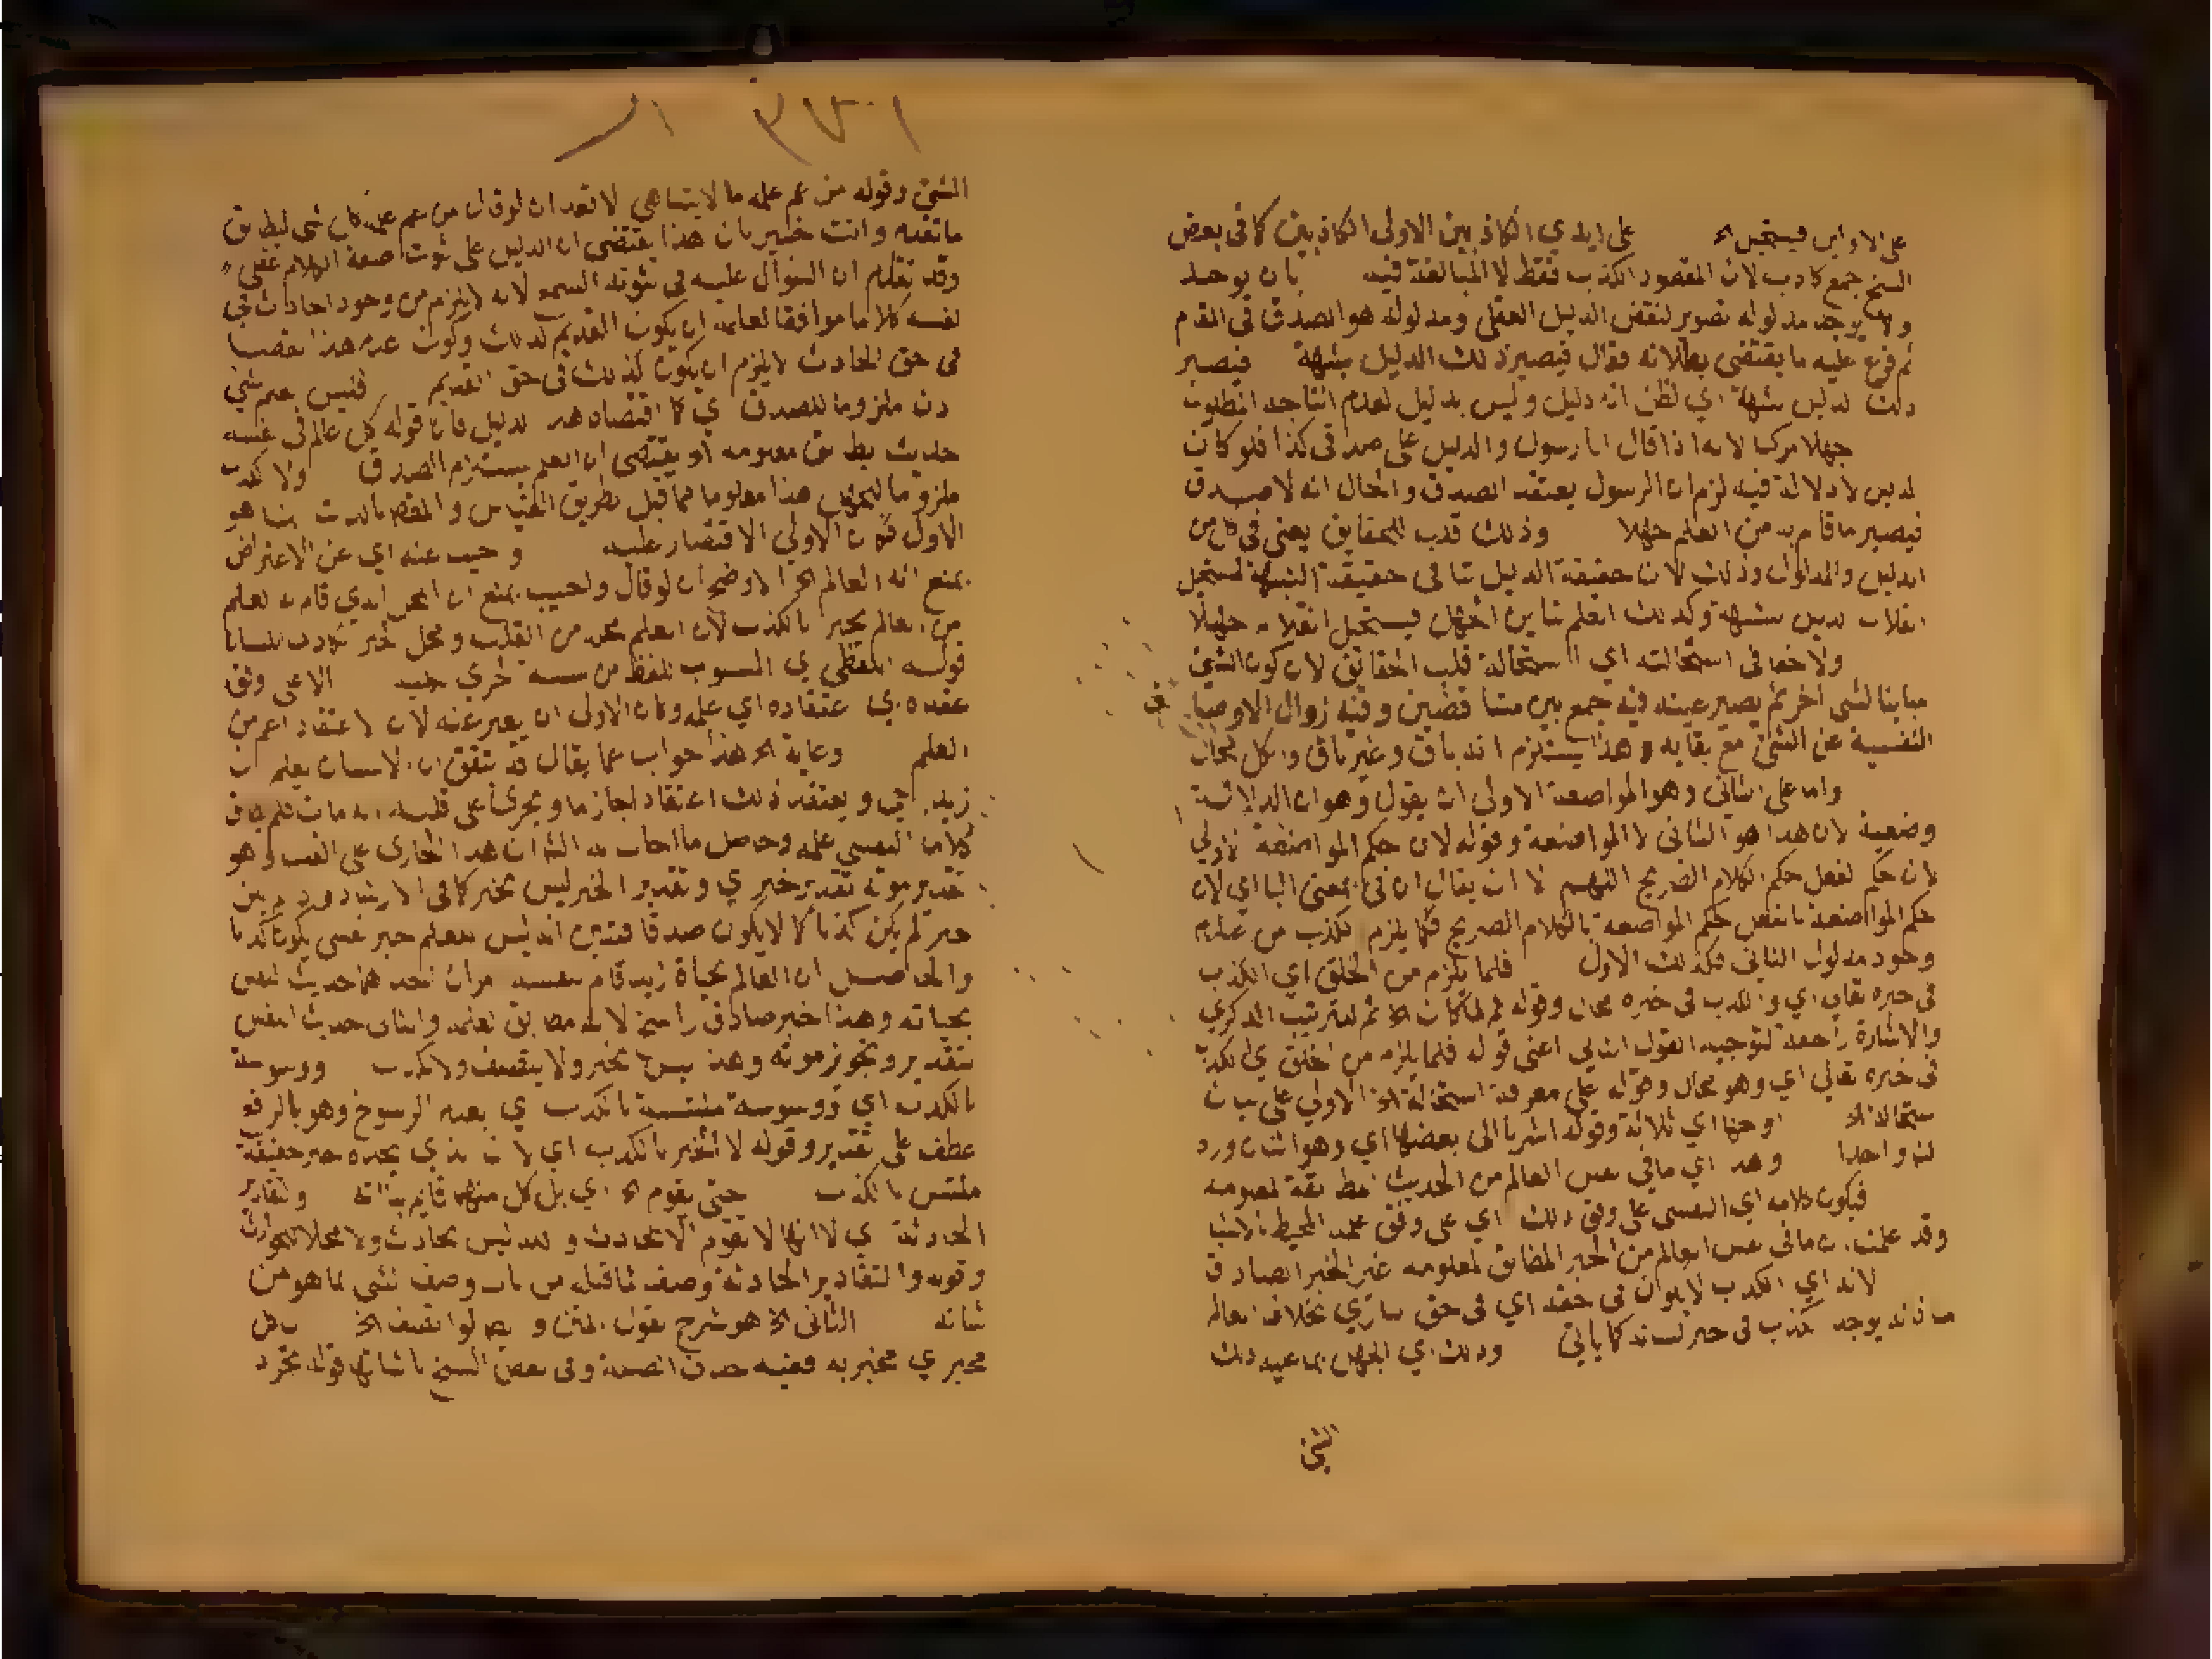 على الاولين فيستحيل الخ على ايدي الكاذبين الاولى الكاذبين كما في بعض
النسخ جمع كاذب لان المقصود الكذب فقط لا المبالغة فيه بان يوجد
ولا يوجد مدلوله تصوير لنقض الدليل العقلي ومدلوله هو الصدق في المقام
ثم فرع عليه ما يقتضي بطلانه فقال فيصير ذلك الدليل شبهة فيصير
ذلك الدليل شبهة اي لظن انه دليل وليس بدليل لعدم انتاجه المطلوب
جهلا مركبا لانه اذا قال انا رسول والدليل على صدقي كذا فلو كان
الدليل لا دلالة فيه لزم ان الرسول يعتقد الصدق والحال انه لا صدق
فيصير ما قام به من العلم جهلا وذلك قلب للحقايق يعني في كل من
الدليل والمدلول وذلك لان حقيقة الدليل تنافي حقيقة الشبهة فيستحيل
انقلاب الدليل شبهة وكذلك العلم تباين الجهل فيستحيل انقلابه جهلا
ولا خفا في استحالته اي استحالة قلب الحقائق لان كون الشيئ
مباينا لشي اخر ثم يصير عينه فيه جمع بين متناقضين وفيه زوال الاوصاف
النفسية عن الشيئ مع بقايه وهذا يستلزم انه باق وغير باق والكل محال
واما على الثاني وهو المواضعة الاولى ان يقول وهو ان الدلالة
وضعية لان هذا هو الثاني لا المواضعة وقوله لان حكم المواضعة الاولى
لان حكم الفعل حكم الكلام الصريح اللهم الا ان يقال ان في بمعنى البا اي لان
حكم المواضعة بالفعل حكم المواضعة بالكلام الصريح فكما يلزم الكذب من عدم
وجود مدلول الثاني فكذلك الاول فلما يلزم من الخلق اي الكذب
في خبره تعالى اي والكذب في خبره محال وقوله ثم لما كان الخ ثم للترتيب الذكري
والاشارة راجعة لتوجيه القول الثاني اعني قوله فلما يلزم من الخلق اي الكذب
في خبره تعالى اي وهو محال وقوله على معرفة استحالة الخ الاولى على بيان
استحالة الخ اوجها اي ثلاثة وقوله اشرنا الى بعضها اي وهو الثاني ورد
وهذا اي ما في نفس العالم من الحديث المطابقة لمعلومه
فيكون كلامه اي النفسي على وفق ذلك اي على وفق علمه المحيط بالاشيا
وقد علمت ان ما في نفس العالم من الخبر المطابق لمعلومه غير الخبر الصادق
لانه اي الكذب لا يكون في حقه اي في حق الباري بخلاف العالم
منا فانه يوجد الكذب في خبر لسانه كما ياتي وذلك اي الجهل بما عليه ذلك
الشيئ
الشيئ وقوله من عم علمه ما لا يتناهى لا قعد ان لو قال من عم علمه كل شي ليطابق
ما تقدم وانت خبير بان هذا يقتضي ان الدليل على ثبوت صفة الكلام عقلي
وقد تقدم ان السؤال عليه في ثبوته السمع لانه لا يلزم من وجود الحادث في
نفسه كلاما موافقا لعلمه ان يكون القديم كذلك وكون عدم هذا نقصا
في حق الحادث لا يلزم ان يكون كذلك في حق القديم فليس علم شي
ذلك ملزوما للصدق اي كما اقتضاه هذا الدليل فان قوله كل عالم في نفسه
حديث يطابق معلومه يقتضي ان العلم يستلزم الصدق ولا كذب
ملزوما للجهل هذا معلوم مما قبل بطريق القياس والمقصود بالذات هنا هو
الاول فكان الاولى الاقتصار عليه واجيب عنه اي عن الاعتراض
بمنع انه العالم الخ الاوضح ان لو قال واجيب بمنع ان المحل الذي قام به العلم
من العالم يخبر بالكذب لان العلم محله من القلب ومحل الخبر الكاذب اللسان
قوله اللفظي اي المنسوب للفظ من نسبة الجزئي الاعلى وفق
عقده اي اعتقاده اي علمه وكان الاولى ان يعبر عنه لان الاعتقاد اعم من
العلم وغاية الخ هذا جواب عما يقال قد يتفق ان الانسان يعلم ان
زيد حي ويعتقد ذلك اعتقادا جازما ويجري على قلبه انه مات فلم يكن
كلامه النفسي علمه وحاصل ما اجاب به الش ان هذا الجاري على القلب هو
تقدير موته تقدير خبري وتقدير الخبر ليس بخبر كما في الارشاد
خبر لم يكن كذبا كما لا يكون صدقا فتبين انه ليس للعالم خبر نفسي يكون كذبا
والحاصل ان العالم بحياة زيد قام بنفسه امران احدهما حديث النفس
بحياته وهذا خبر صادق راسخ لانه مطابق لعلمه والثاني حديث النفس
بتقدير وتجويز موته وهذا ليس بخبر ولا يتصف ولا بكذب ووسوسة
بالكذب اي ووسوسة ملتبسة بالكذب اي بعد الرسوخ وهو بالرفع
عطف على تقدير وقوله لا الخبر بالكذب اي لان الذي يجده خبر حقيقة
ملتبس بالكذب حتى يقوم الخ اي بل كل منهما قايم بذاته والتقادير
الحادثة اي لانها لا تقوم الا بحادث والله ليس بحادث ولا محلا للحوادث
وقوله والتقادير الحادثة وصف لما قبله من باب وصف الشي بما هو من
شانه الثاني الخ هو شرح لقول المتن ولو اتصف الخ
مخبر اي مخبر به ففيه حذف الصلة وفي بعض النسخ باثباتها قوله بخرد